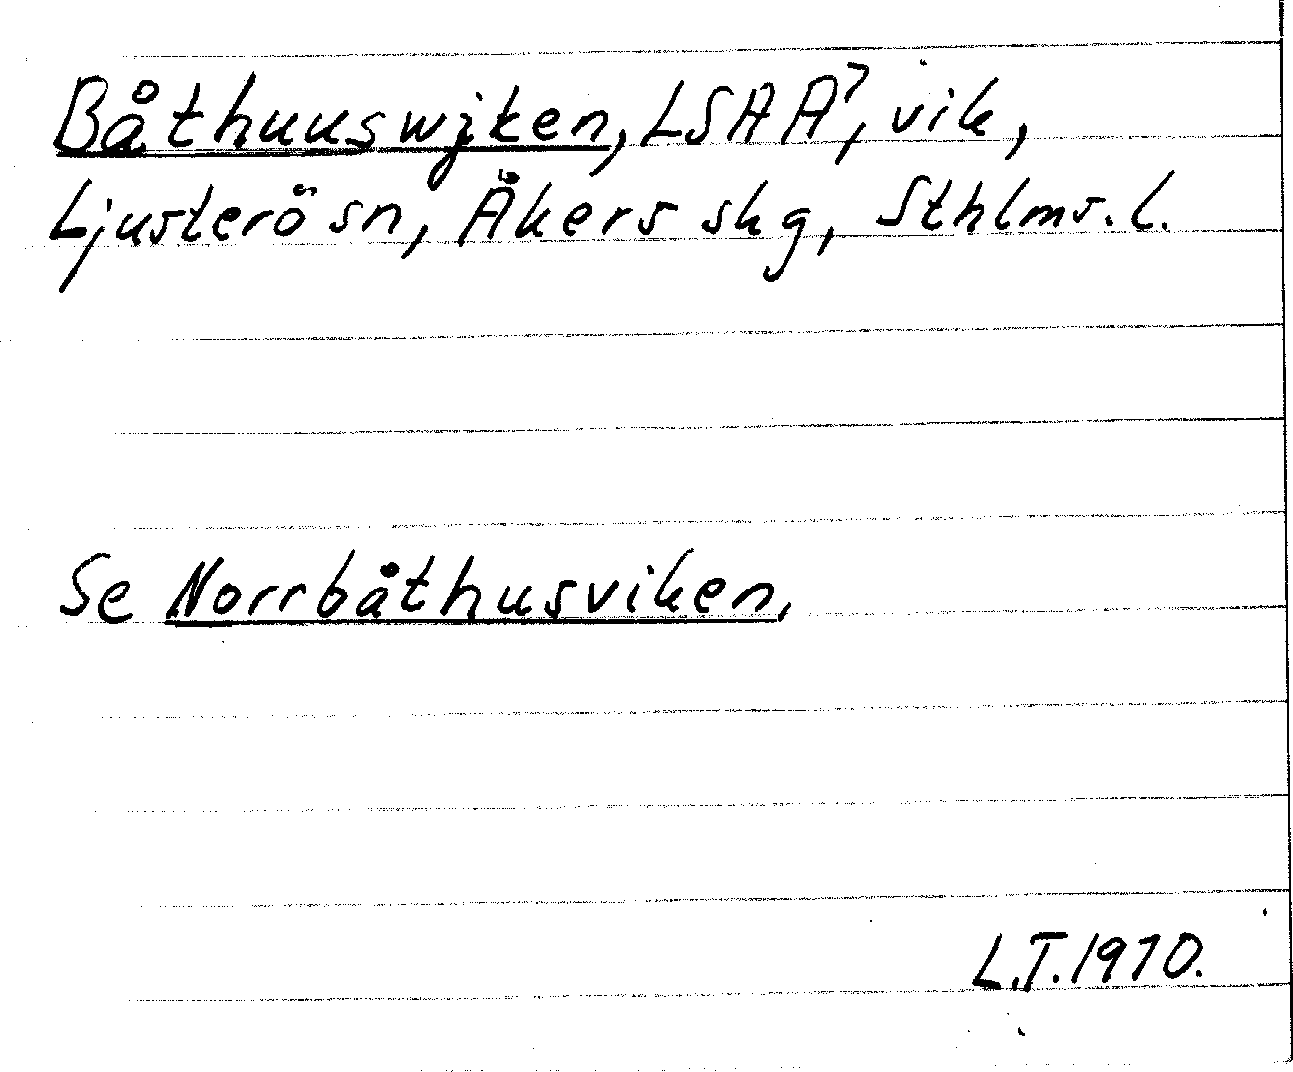 Båthuuswijken, LSA A7, vik,
Ljusterö sn, Åkers skg, Sthlms. l.
Se Norrbåthusviken,
L.T. 1970.